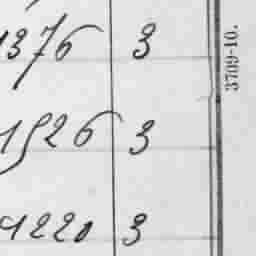 1376 3
1526 3
4220 3
3709-10.